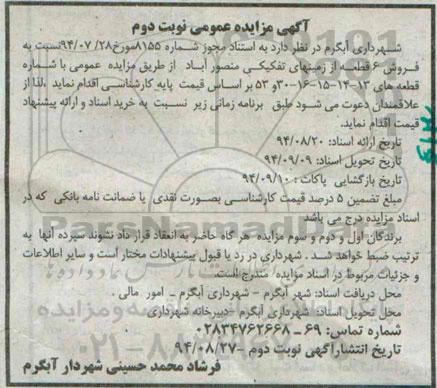 آگهی مزایده عمومی نوبت دوم
شهرداری آبگرم در نظر دارد به استناد مجوز شماره ۸۱۵۵مورخ۲۸/ ۹۴/۰۷نسبت به
فروش ۶ قطعه از زمینهای تفکیکی منصور آباد از طریق مزایده عمومی با شماره
قطعه های ۱۳-۱۴-۱۵-۱۶-۳۰و ۵۳ بر اساس قیمت پایه کارشناسی اقدام نماید ،لذا از
علاقمندان دعوت می شود طبق برنامه زمانی زیر نسبت به خرید اسناد و ارائه پیشنهاد
قیمت اقدام نماید.
تاریخ ارائه اسناد: ۹۴/۰۸/۲۰
تاریخ تحویل اسناد: ۹۴/۰۹/۰۹
تاریخ بازگشایی پاکات : ۹۴/۰۹/۱۰
مبلغ تضمین ۵ درصد قیمت کارشناسی بصورت نقدی یا ضمانت نامه بانکی که در
اسناد مزایده درج می باشد
برندگان اول و دوم و سوم مزایده هر گاه حاضر به انعقاد قرار داد نشوند سپرده آنها به
ترتیب ضبط خواهد شد . شهرداری در رد یا قبول پیشنهادات مختار است و سایر اطلاعات
و جزئیات مربوط در اسناد مزایده/ مندرج است.
محل دریافت اسناد: شهر آبگرم - شهرداری آبگرم - امور مالی .
محل تحویل اسناد: شهرداری آبگرم -دبیرخانه شهرداری
شماره تماس: ۶۹ - ۰۲۸۳۴۷۶۲۶۶۸
تاریخ انتشارآگهی نوبت دوم -۹۴/۰۸/۲۷
فرشاد محمد حسینی شهردار آبگرم
ParsNamadData